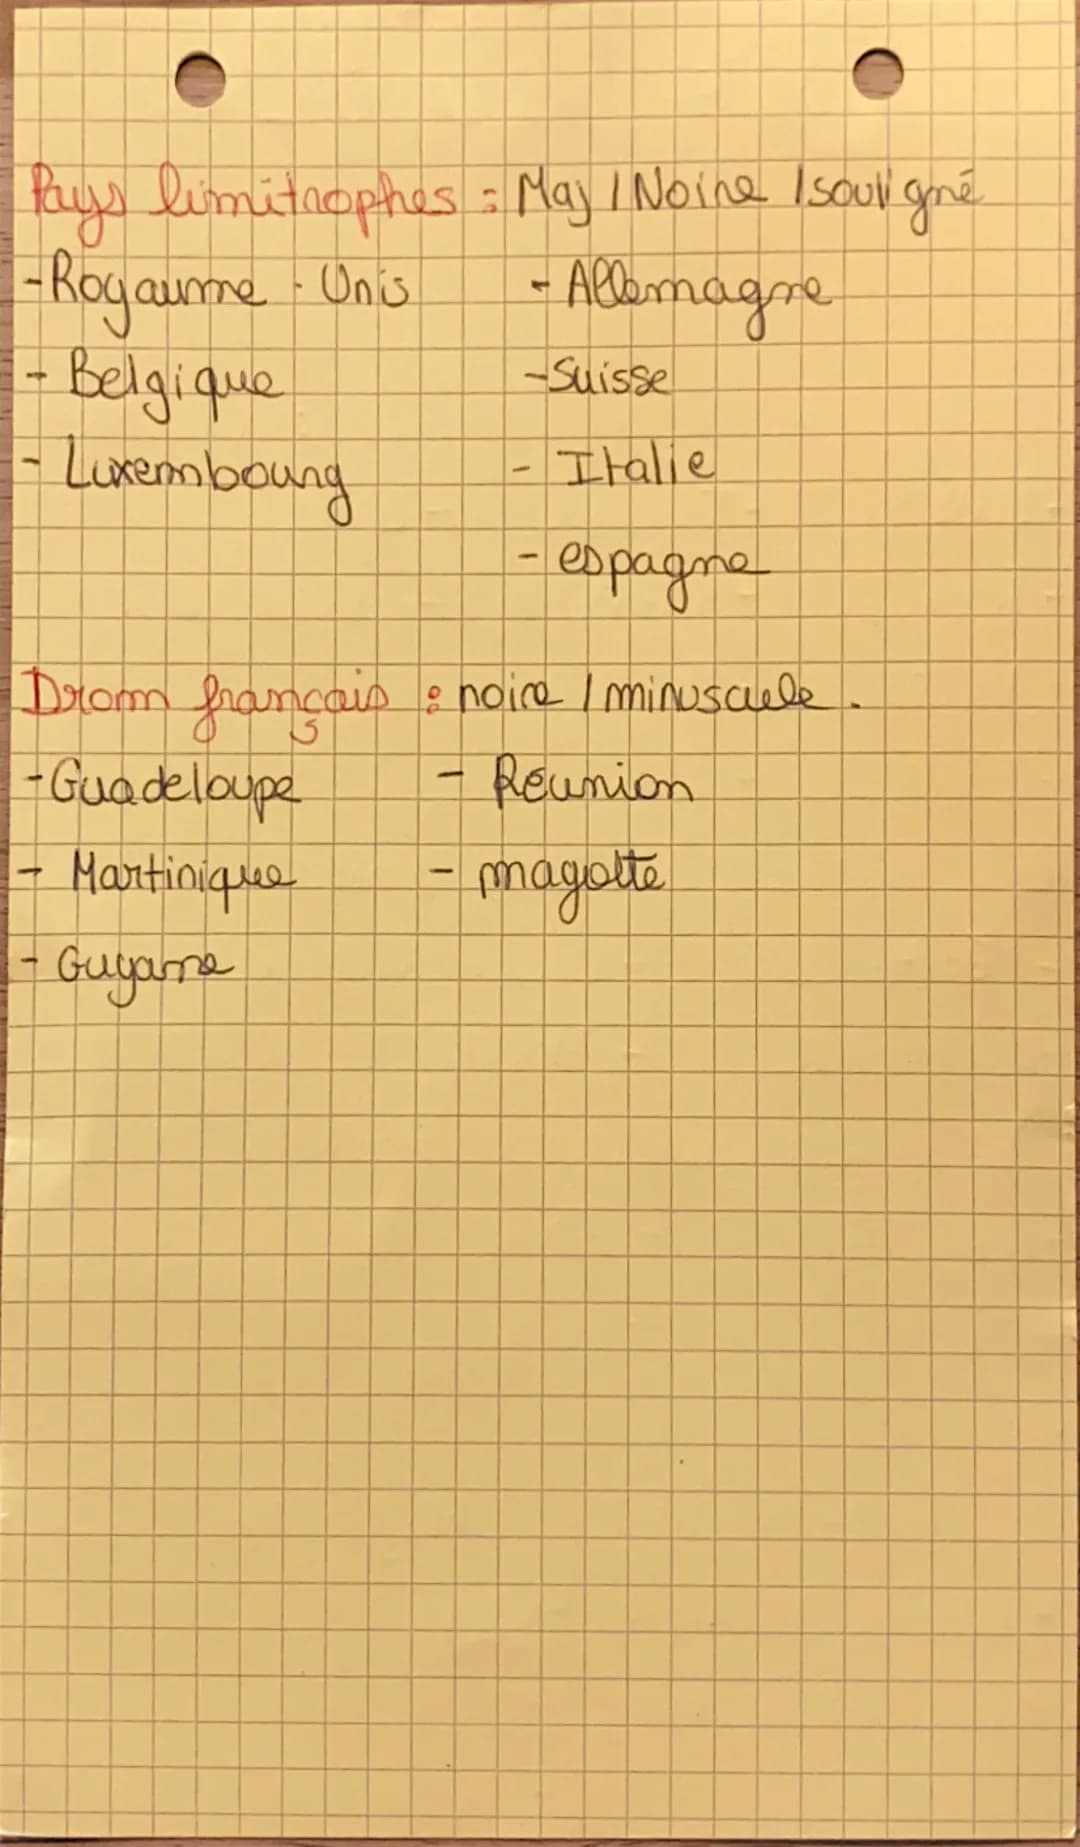 Pays limitrophes : Maj / Noire / souligné
- Royaume - Unis - Allemagne
- Belgique - Suisse
- Luxembourg - Italie
- espagne
Drom français : noire / minuscule.
- Guadeloupe - Réunion
- Martinique - magotte
- Guyane